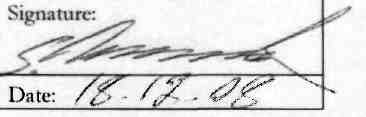 Signature:
Date: 18.12.08